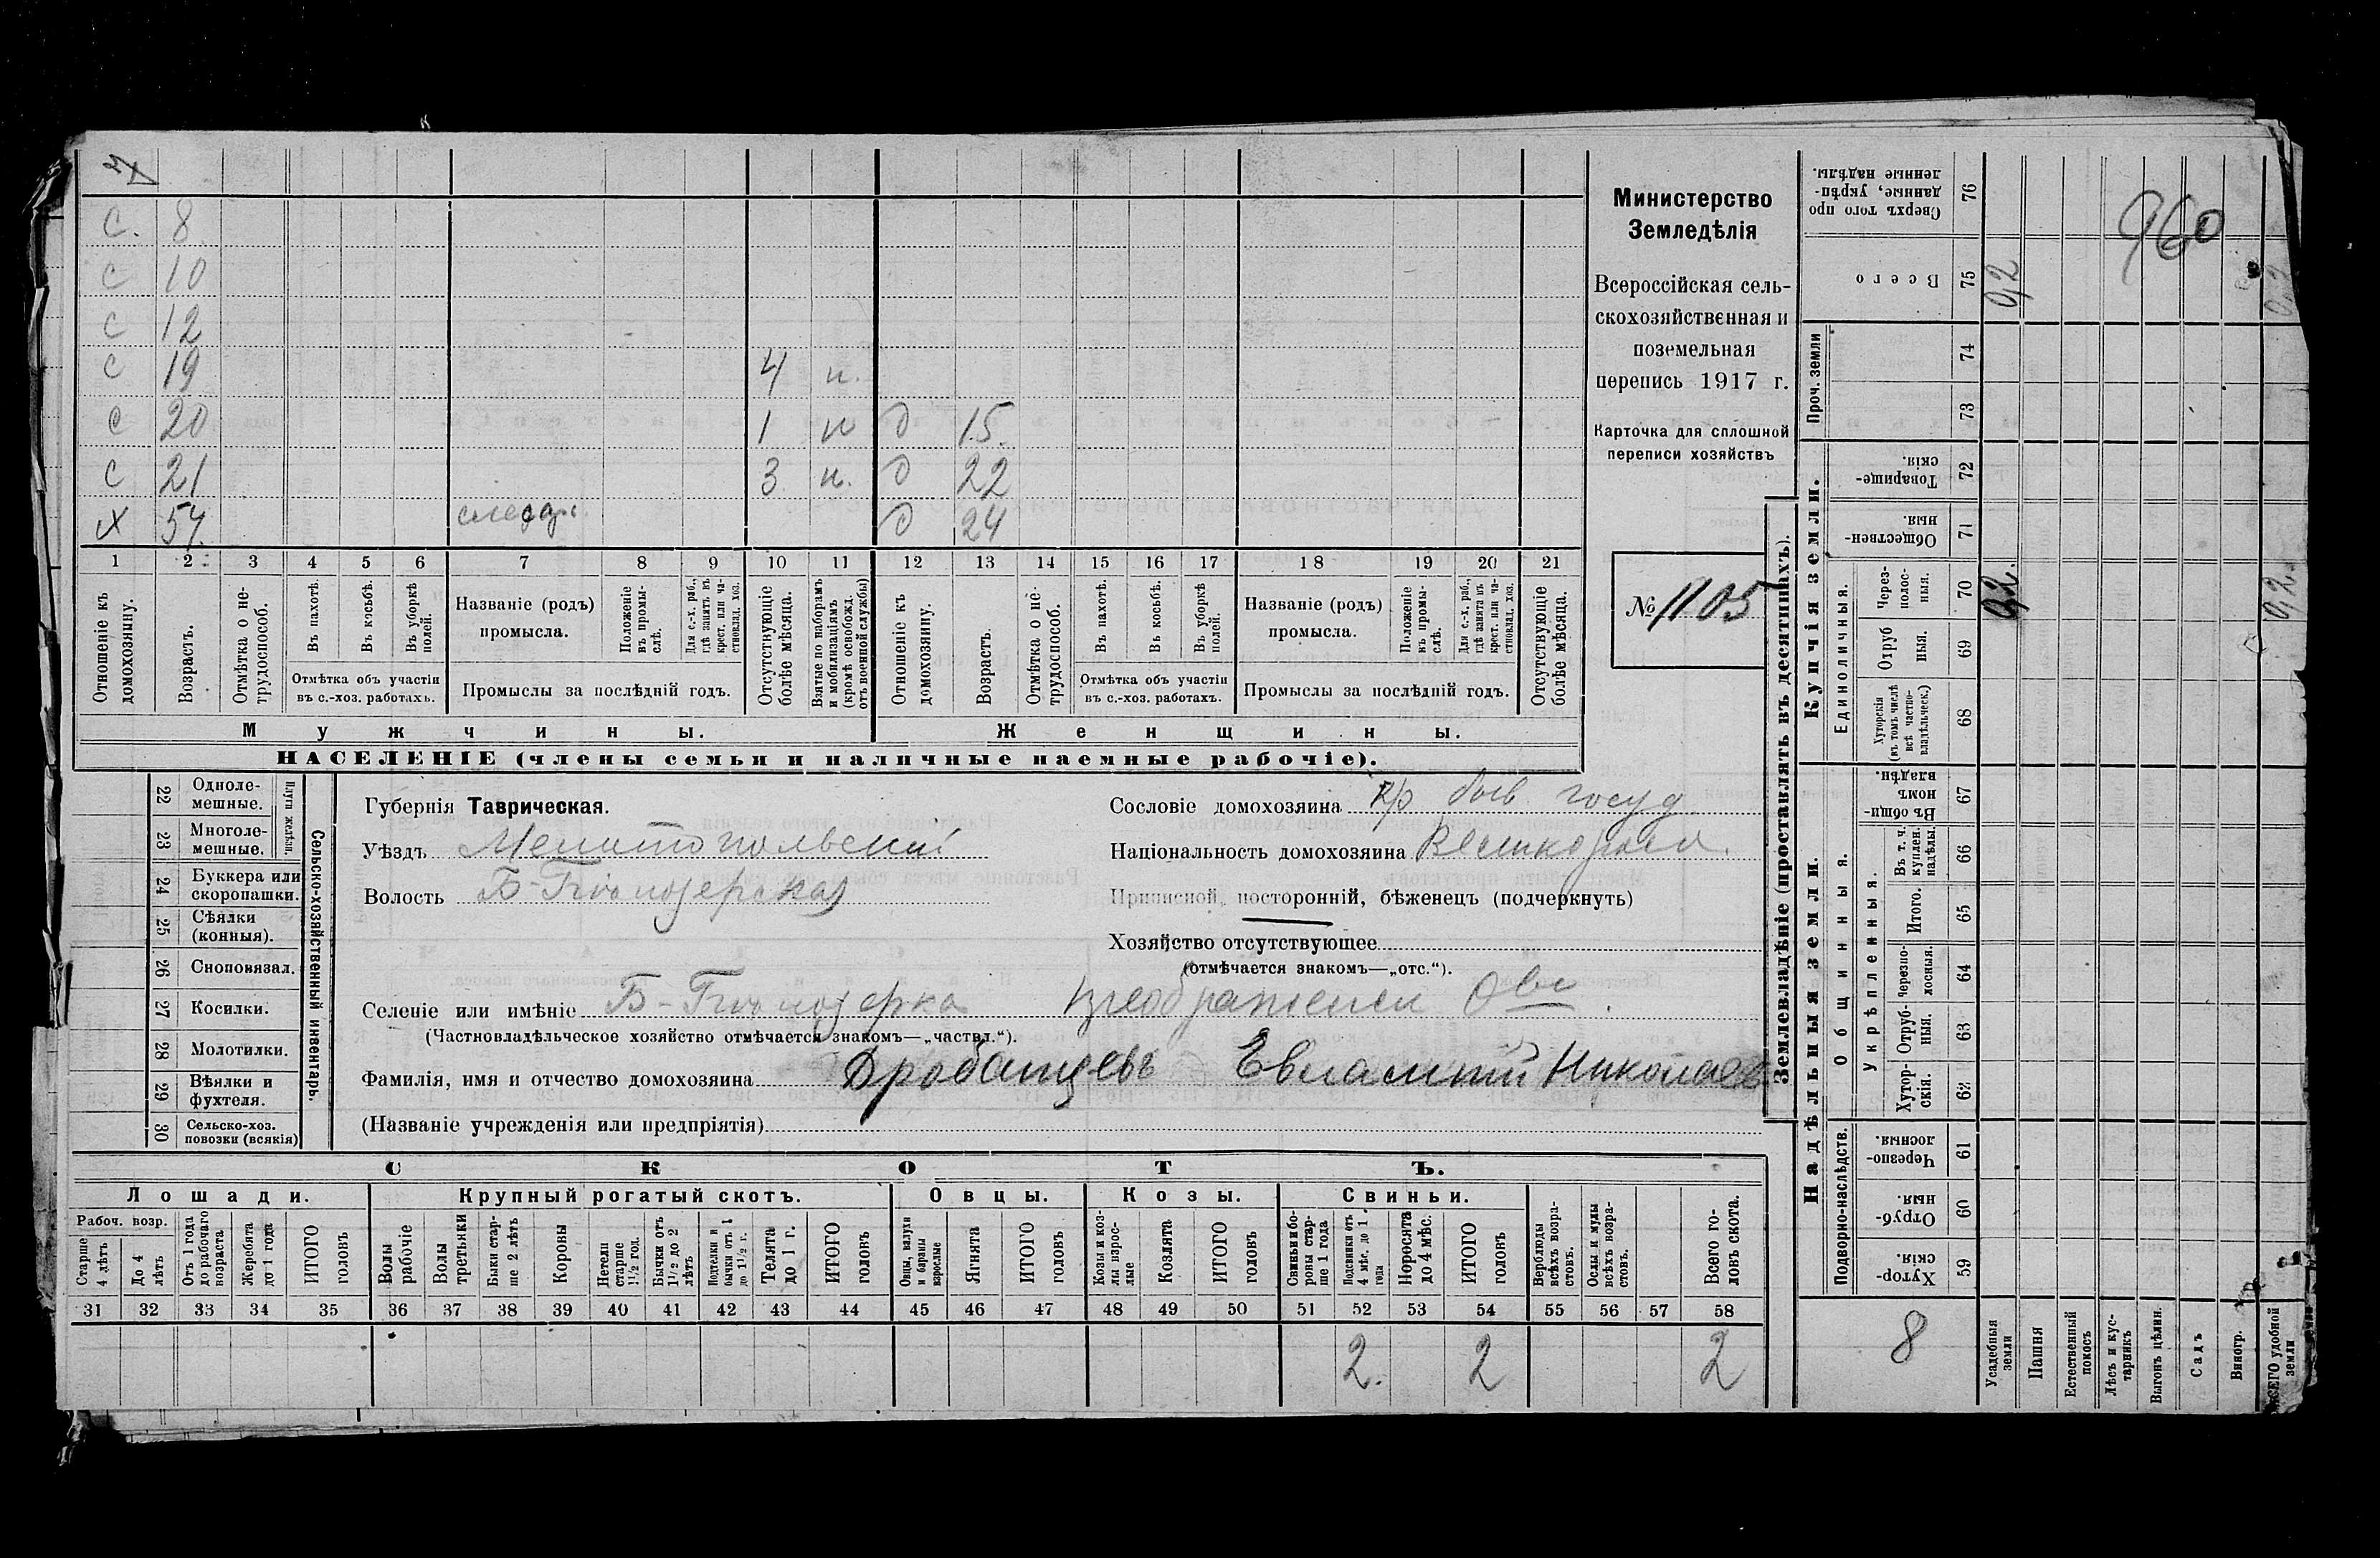 С. 8
С 10
С 12
С 19 4 н.
С 20 1 н д 15.
С 21 3 н. д 22
Х 57. слесар. д 24
1 2 3 4 5 6 7 8 9 10 11 12 13 14 15 16 17 18 19 20 21
Отношеніе къ домохозяину.
Возрастъ.
Отмѣтка о нетрудоспособ.
Въ пахотѣ.
Въ косьбѣ.
Въ уборкѣ полей.
Отмѣтка объ участіи въ с.-хоз. работахъ.
Названіе (родъ) промысла.
Положеніе въ промыслѣ.
Для с.-х. раб., гдѣ занятъ въ крест. или частновлад. хоз.
Промыслы за послѣдній годъ.
Отсутствующіе болѣе мѣсяца.
Взятые по наборамъ и мобилизаціямъ (кромѣ освобожд. отъ военной службы)
Отношеніе къ домохозяину.
Возрастъ.
Отмѣтка о нетрудоспособ.
Въ пахотѣ.
Въ косьбѣ.
Въ уборкѣ полей.
Отмѣтка объ участіи въ с.-хоз. работахъ.
Названіе (родъ) промысла.
Положеніе въ промыслѣ.
Для с.-х. раб., гдѣ занята въ крест. или частновлад. хоз.
Промыслы за послѣдній годъ.
Отсутствующіе болѣе мѣсяца.
Мужчины.
Женщины.
НАСЕЛЕНІЕ (члены семьи и наличные наемные рабочіе).
Министерство
Земледѣлія
Всероссійская сель-
скохозяйственная и
поземельная
перепись 1917 г.
Карточка для сплошной
переписи хозяйствъ
№ 1105
22 Одноле-мешные.
23 Многоле-мешные.
Плуги желѣзн.
24 Буккера или скоропашки.
25 Сѣялки (конныя).
26 Сноповязал.
27 Косилки.
28 Молотилки.
29 Вѣялки и фухтеля.
30 Сельско-хоз. повозки (всякія)
Сельско-хозяйственный инвентарь.
Губернія Таврическая.
Уѣздъ Мелитопольскій
Волость Б-Бѣлозерская
Сословіе домохозяина кр быв госуд
Національность домохозяина Великоросс.
Приписной, посторонній, бѣженецъ (подчеркнуть)
Хозяйство отсутствующее
(отмѣчается знакомъ—„отс.“).
Селеніе или имѣніе Б-Бѣлозерка
(Частновладѣльческое хозяйство отмѣчается знакомъ—„частвл.“).
Фамилія, имя и отчество домохозяина Дробатцевъ Евлампій Николаев
(Названіе учрежденія или предпріятія)
СКОТЪ.
Лошади. Крупный рогатый скотъ. Овцы. Козы. Свиньи.
Рабоч. возр.
Старше 4 лѣтъ
До 4 лѣтъ
Отъ 1 года до рабочаго возраста
Жеребята до 1 года
ИТОГО головъ
Волы рабочіе
Волы третьяки
Быки старше 2 лѣтъ
Коровы
Нетели старше 1½ год.
Бычки отъ 1½ до 2 лѣтъ
Подтелки и бычки отъ 1 до 1½ г.
Телята до 1 г.
ИТОГО головъ
Овцы, валухи и бараны взрослые
Ягнята
ИТОГО головъ
Козы и козлы взрослые
Козлята
ИТОГО головъ
Свиньи и боровы старше 1 года
Подсвинки отъ 4 мѣс. до 1 года
Поросята до 4 мѣс.
ИТОГО головъ
Верблюды всѣхъ возрастовъ.
Ослы и мулы всѣхъ возрастовъ.
Всего головъ скота.
31 32 33 34 35 36 37 38 39 40 41 42 43 44 45 46 47 48 49 50 51 52 53 54 55 56 57 58
2. 2 2
Землевладѣніе (проставлять въ десятинахъ).
Купчія земли.
Надѣльныя земли.
76 Сверхъ того проданные, укрѣпленные надѣлы.
75 Всего
Проч. земли
74
73
72 Товарищескія.
71 Общественныя.
Единоличныя.
70 Черезполосныя.
69 Отрубныя.
68 Хуторскія (въ томъ числѣ всѣ частновладѣльческ.)
Общинныя.
67 Въ общинномъ владѣн.
Укрѣпленныя.
66 Въ т. ч. куплен. надѣлы.
65 Итого.
64 Черезполосныя.
63 Отрубныя.
62 Хуторскія.
Подворно-наслѣдств.
61 Черезполосныя.
60 Отрубныя.
59 Хуторскія.
960
0,2
0,2.
0,2
0,2
8
Усадебныя земли
Пашня
Естественный покосъ
Лѣсъ и кустарникъ
Выгонъ цѣлин.
Садъ
Виногр.
ВСЕГО удобной земли